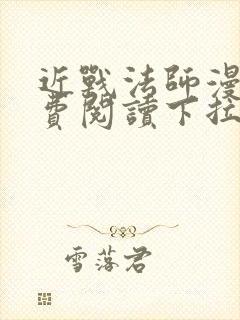 近戰法師漫
費閱讀下拉
雪落君